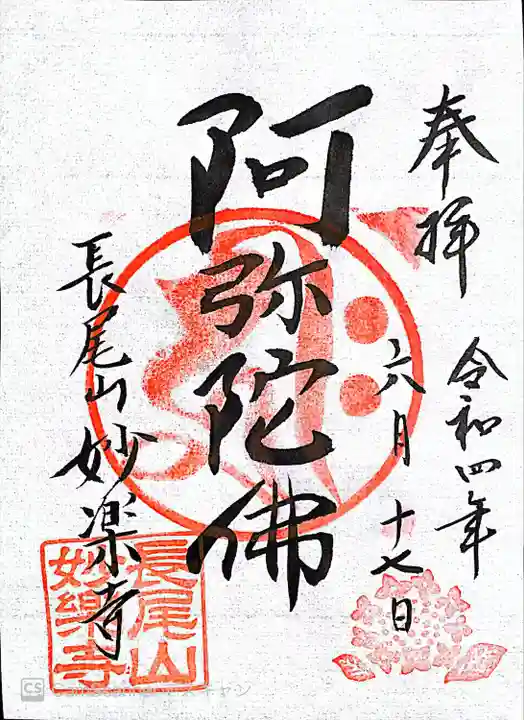 奉拝
令和四年
六月十七日
阿弥陀佛
長尾山妙楽寺
長尾山
妙樂寺
CS